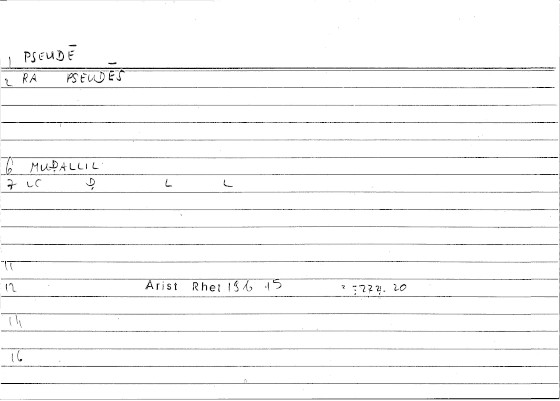 1 PSEUDĒ
2 RA PSEUDĒS
6 MUḌALLIL
7 LC Ḍ L L
11
12 Arist Rhet 20
14
16